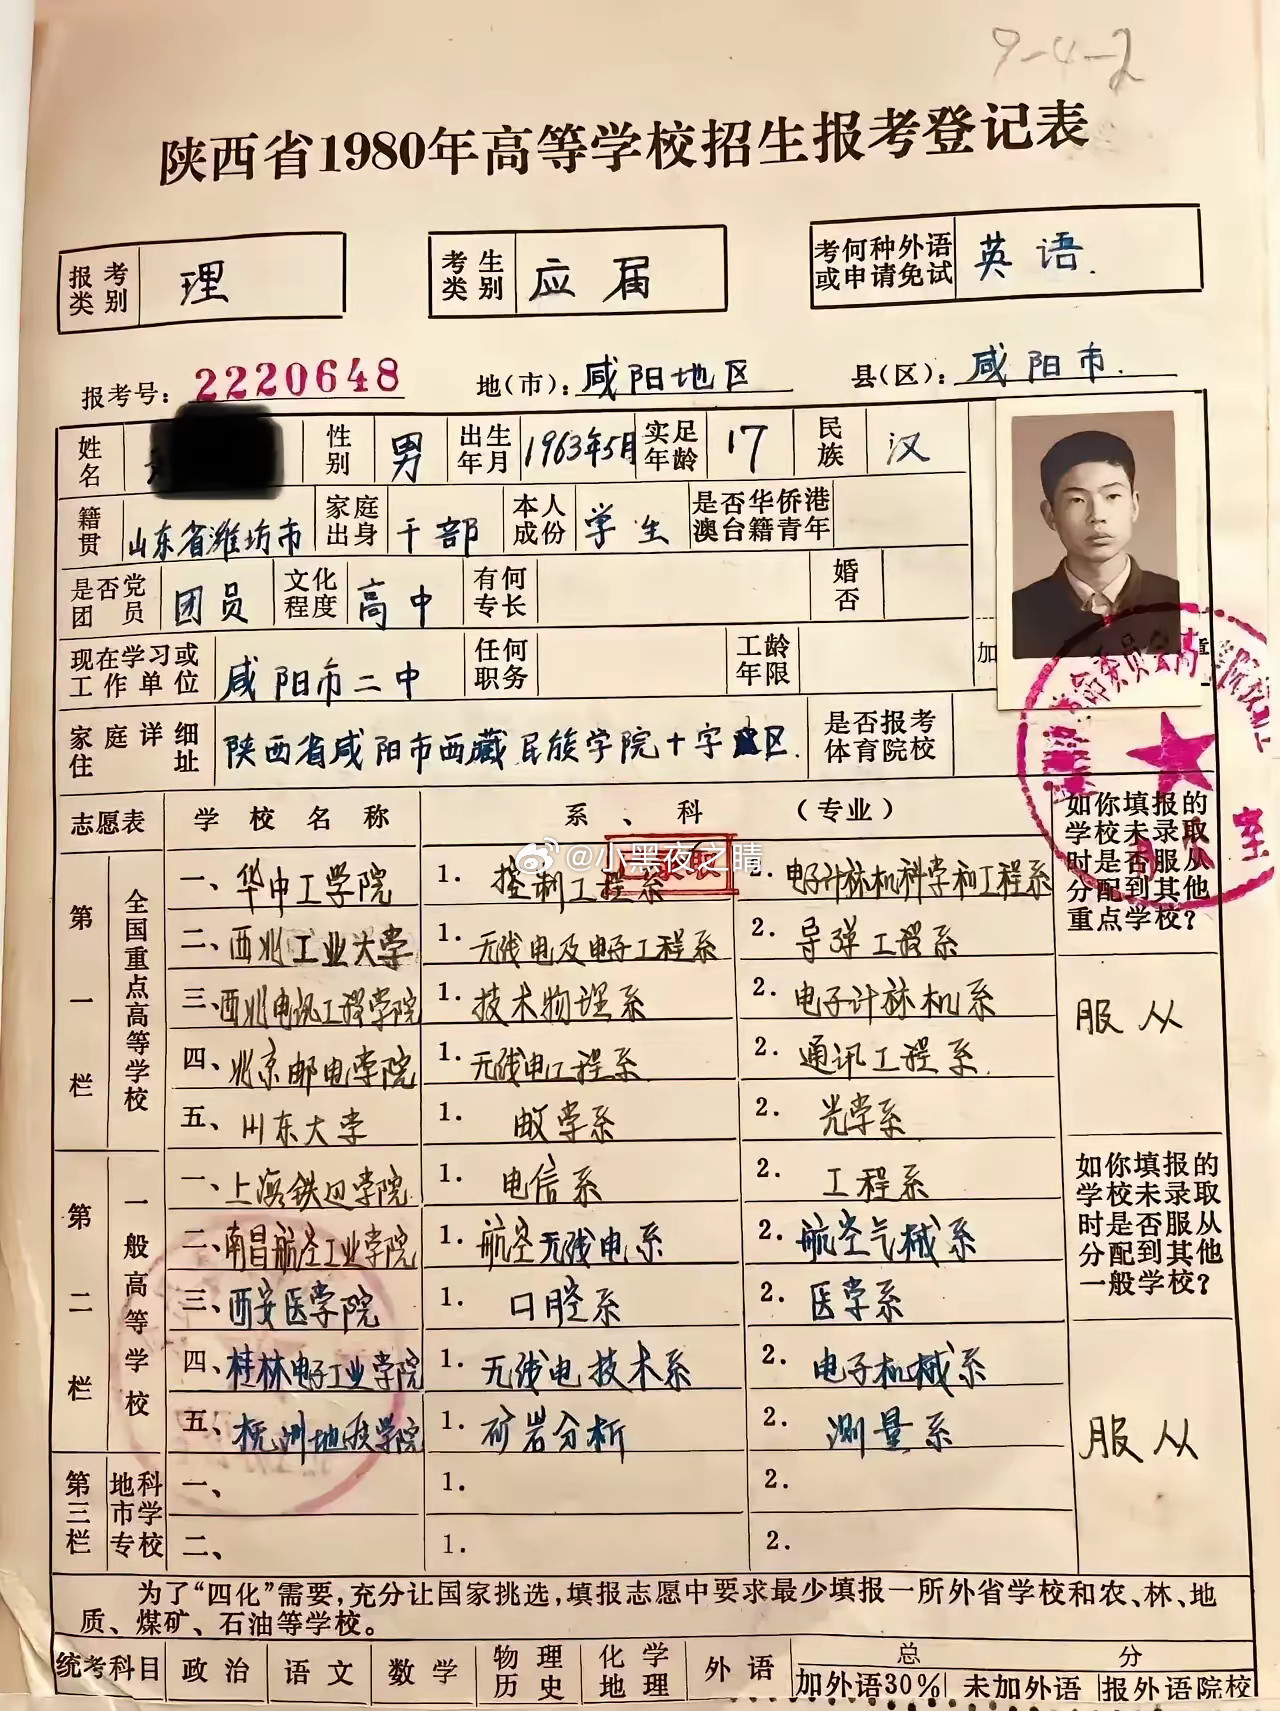 9-4-2
陕西省1980年高等学校招生报考登记表
报考类别 理 考生类别 应届 考何种外语或申请免试 英语.
报考号: 2220648 地(市): 咸阳地区 县(区): 咸阳市.
姓名 性别 男 出生年月 1963年5月 实足年龄 17 民族 汉
籍贯 山东省潍坊市 家庭出身 干部 本人成份 学生 是否华侨港澳台籍青年
是否党团员 团员 文化程度 高中 有何专长 婚否
现在学习或工作单位 咸阳市二中 任何职务 工龄年限 加
家庭详细住址 陕西省咸阳市西藏民族学院十字区. 是否报考体育院校
志愿表 学校名称 系、科(专业) 如你填报的学校未录取时是否服从分配到其他重点学校?
@小黑夜之睛
第一栏 全国重点高等学校
一、华中工学院 1. 控制工程系 2. 电子计祘机科学和工程系
二、西北工业大学 1. 无线电及电子工程系 2. 导弹工程系
三、西北电讯工程学院 1. 技术物理系 2. 电子计祘机系 服从
四、北京邮电学院 1. 无线电工程系 2. 通讯工程系.
五、山东大学 1. 数学系 2. 光学系
第二栏 一般高等学校 如你填报的学校未录取时是否服从分配到其他一般学校?
一、上海铁道学院 1. 电信系 2. 工程系
二、南昌航空工业学院 1. 航空无线电系 2. 航空气械系
三、西安医学院 1. 口腔系 2. 医学系
四、桂林电子工业学院 1. 无线电技术系 2. 电子机械系
五、抚州地质学院 1. 矿岩分析 2. 测量系 服从
第三栏 地市专科学校
一、 1. 2.
二、 1. 2.
为了“四化”需要,充分让国家挑选,填报志愿中要求最少填报一所外省学校和农、林、地
质、煤矿、石油等学校。
统考科目 政治 语文 数学 物理历史 化学地理 外语 总分
加外语30% 未加外语 报外语院校